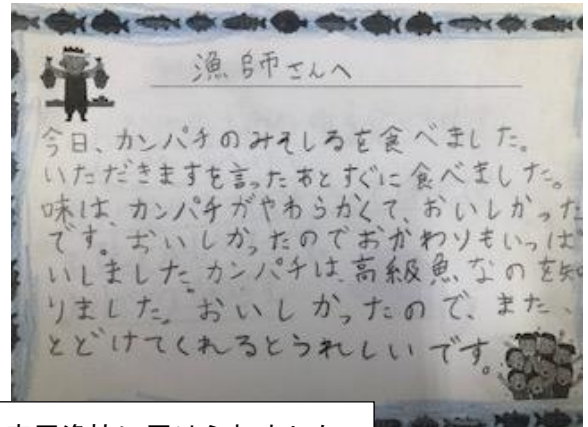 漁師さんへ
今日、カンパチのみそしるを食べました。
いただきますを言ったあとすぐに食べました。
味は、カンパチがやわらかくて、おいしかった
です。おいしかったのでおかわりもいっぱ
いしました。カンパチは、高級魚なのを知
りました。おいしかったので、また、
とどけてくれるとうれしいです。